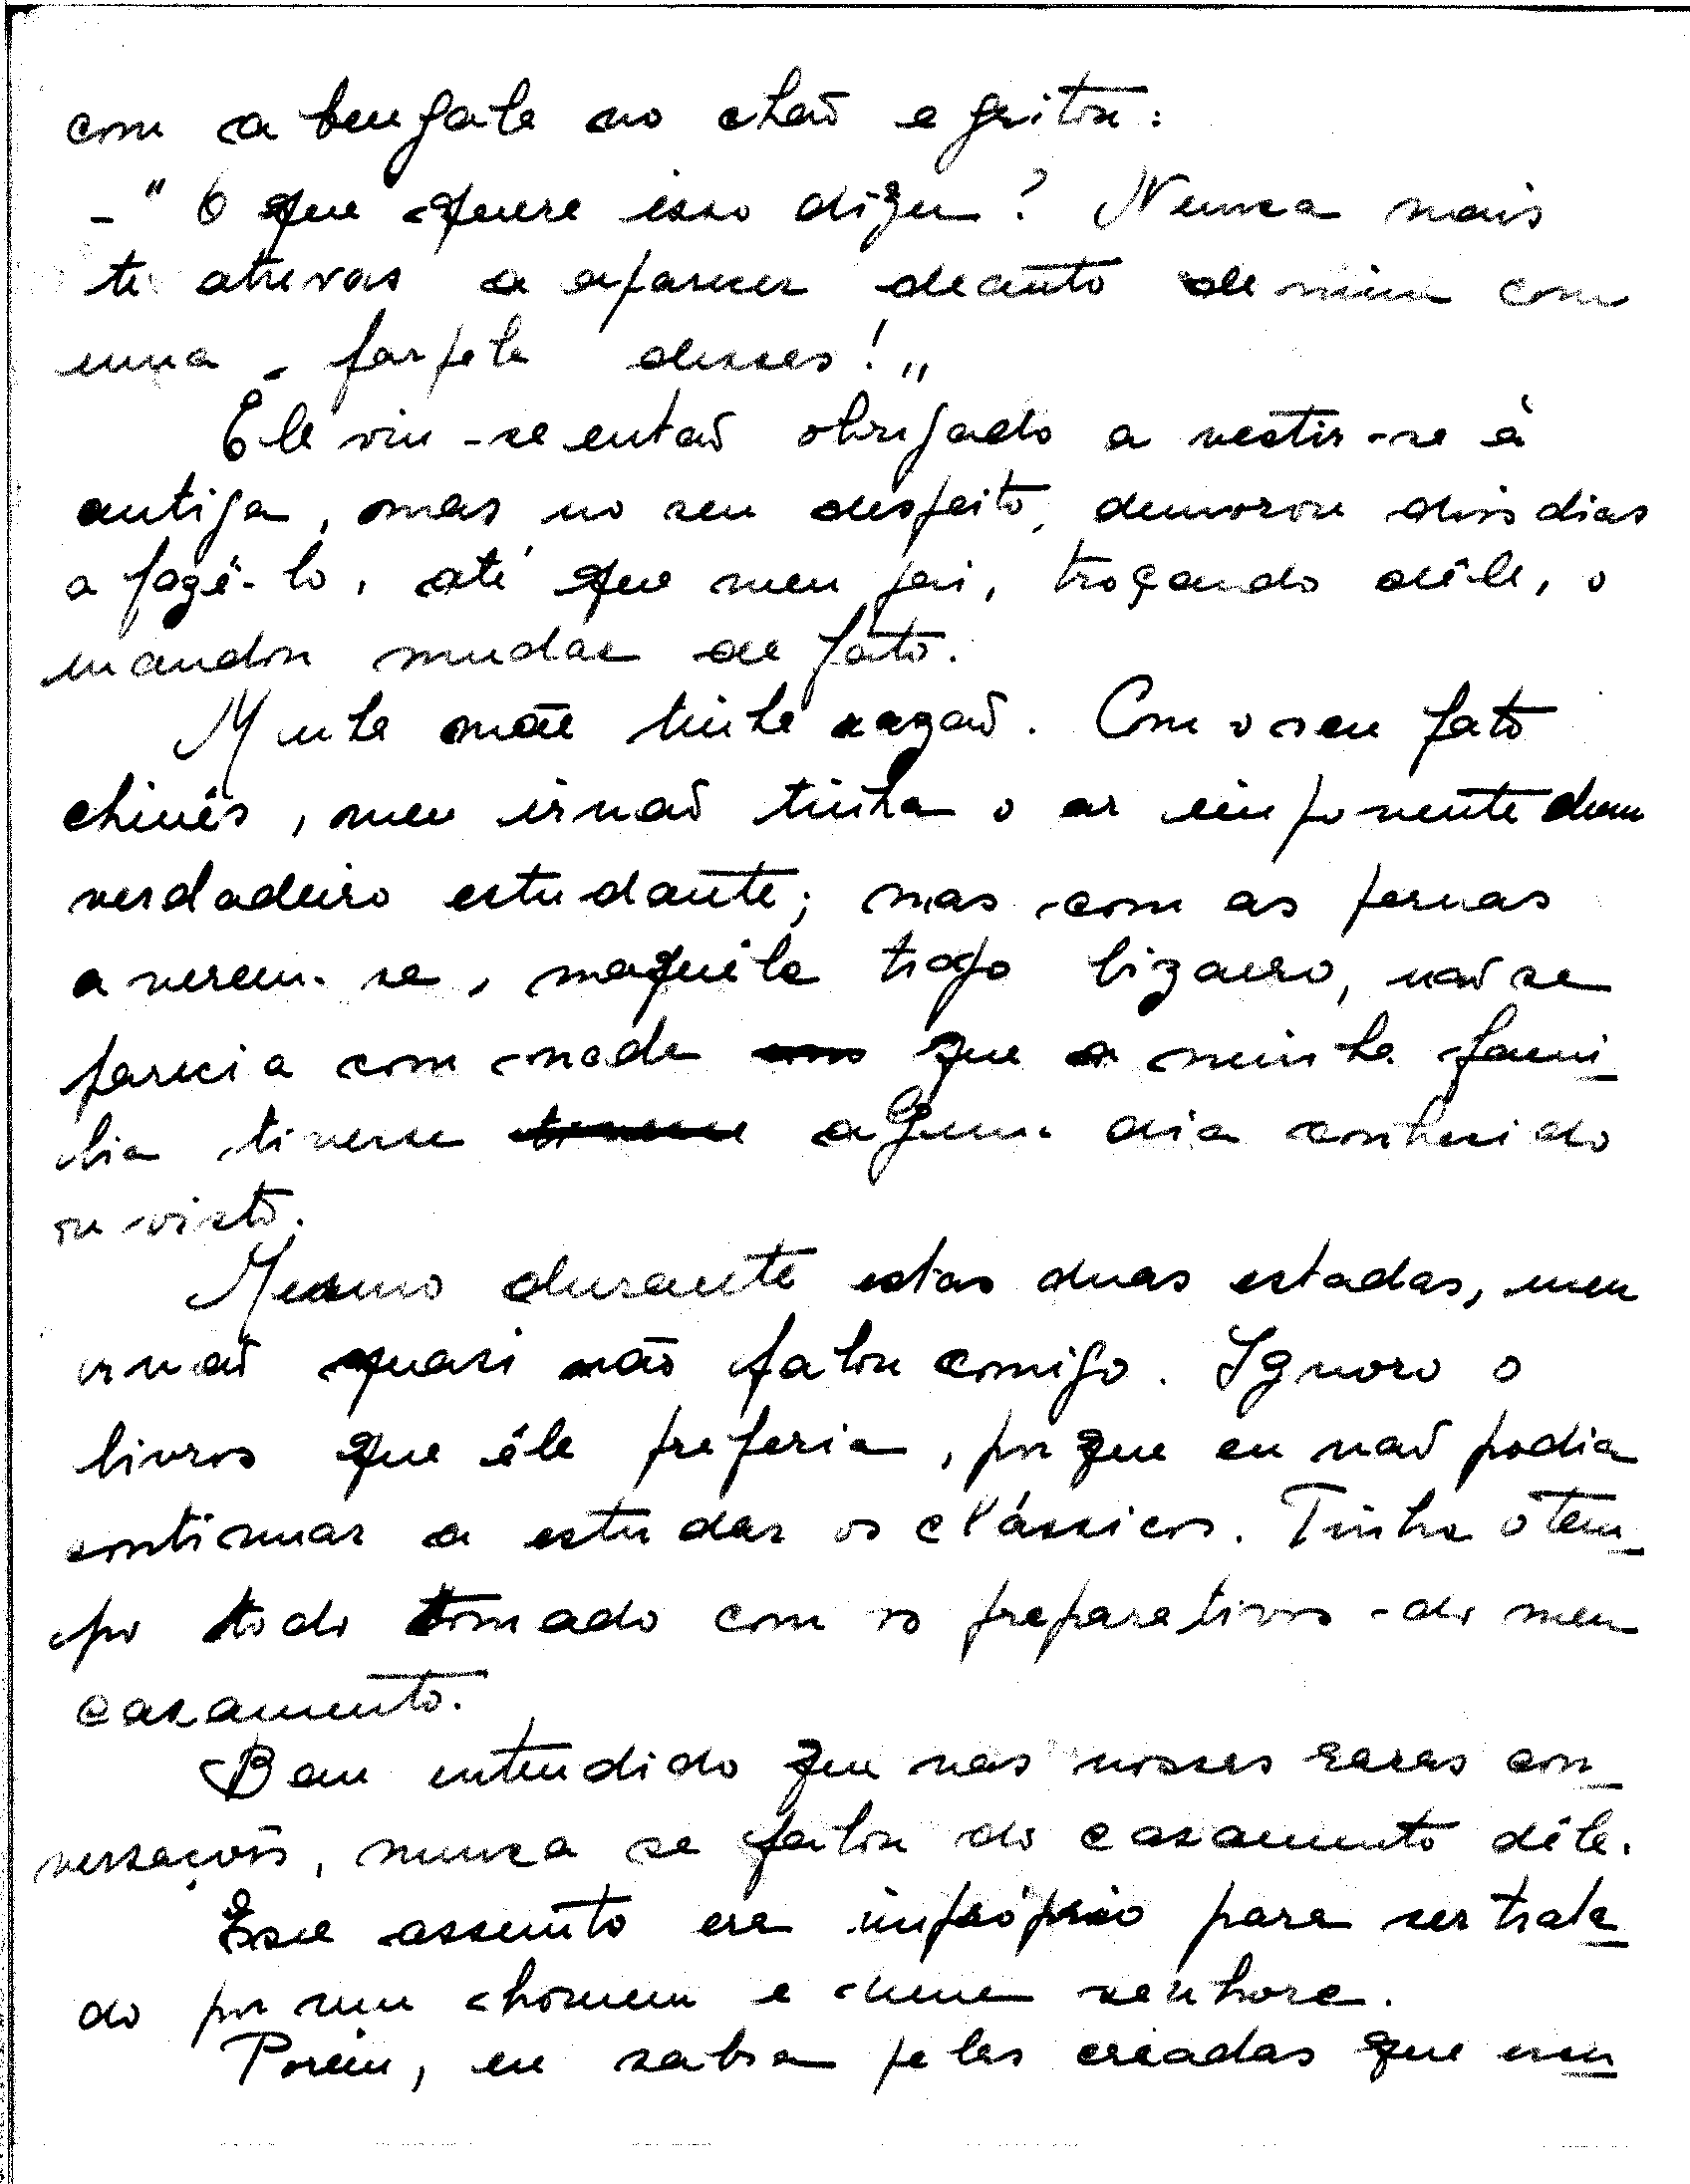 com a bengala no chaõ e gritou:
- "O que quere isso dizer? Nunca mais
te atrevas a aparecer deante de mim com
uma farpela desses!„
Êle viu-se entaõ obrigado a vestir-se à
antiga, mas no seu despeito, demorou dois dias
a fazê-lo, até que meu pai, troçando dêle, o
mandou mudar de fato.
Minha mãe tinha razaõ. Com o seu fato
chinês, meu irmaõ tinha o ar imponente dum
verdadeiro estudante; mas com as pernas
a verem-se, naquele trajo bizarro, naõ se
parecia com nada que a minha fami-
lia tivesse algum dia conhecido
ou visto.
Mesmo durante estas duas estadas, meu
irmaõ quasi não falou comigo. Ignoro o
livros que êle preferia, porque eu naõ podia
continuar a estudar os clássicos. Tinha o tem-
po todo tomado com os preparativos do meu
casamento.
Bem entendido que nas nossas raras con-
versações, nunca se falou do casamento dêle.
Êsse assunto era impróprio para ser trata-
do por um homem e uma senhora.
Porém, eu sabia pelas criadas que meu